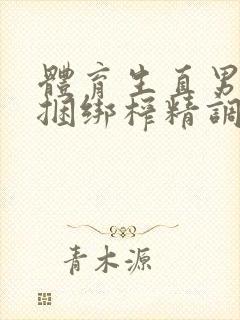 體育生直男
捆绑榨精調
青木源